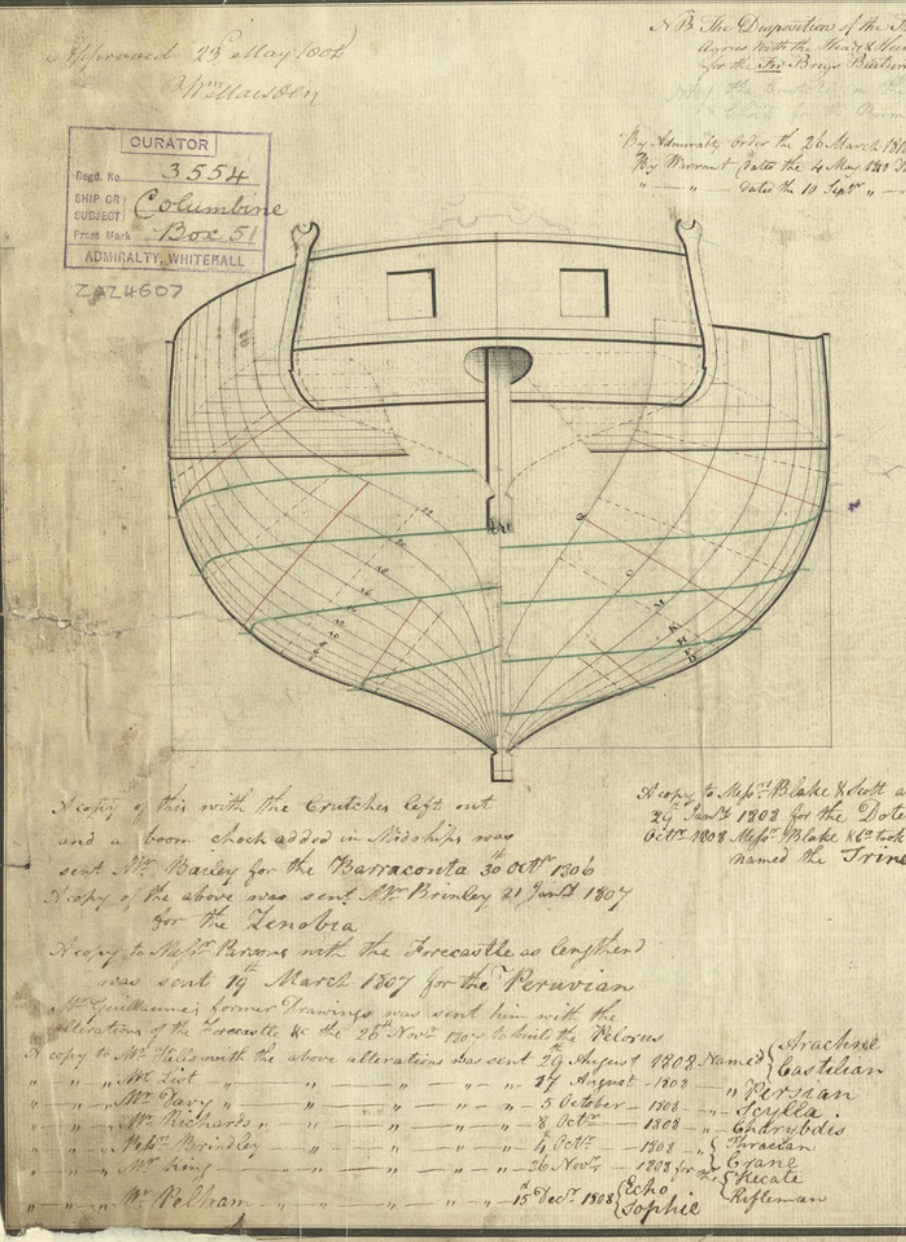 Approved 23d May 180
Wm Marsden
N B The Disposition of the
Agrees with the Head &
for the Fir Brigs
By Admiralty Order the 26 March 181
By Warrant dated the 4 May
" — " — dated the 10 Septr " —
CURATOR
Regd. No. 3554
SHIP OR SUBJECT Columbine
Press Mark Box 51
ADMIRALTY, WHITEHALL
ZAZ4607
22
20
18
16
14
12
10
8
6
Q
O
M
K
H
F
D
A copy of this with the Crutches left out
and a boom chock added in Midships was
sent Mr Bailey for the Barraconta 30th Octr 1806
A copy of the above was sent Mr Brinley 21 Jany 1807
for the Zenobia
A copy to Messrs Parsons with the Forecastle as lengthend
was sent 19th March 1807 for the Peruvian
Mr Guillaume's former Drawings was sent him with the
alterations of the Forecastle &c the 26th Novr 1807 to build the Pelorus
A copy to Mr Hills with the above alterations was sent 29th August 1808 Named { Arachne
Castilian
" " " Mr List " — " — " — " — " 17 August — 1808 — " Persian
" " " Mr Davy " — " — " — " — " 5 October — 1808 — " Scylla
" " " Mr Richards " — " — " — " — " 8 Octr — 1808 — " Charybdis
" " " Messrs Brindley — " — " — " — " 4 Octr — 1808 " { Thracian
Crane
" " " Mr King — " — " — " — " 26 Novr — 1808 for the { Hecate
Rifleman
" " " Mr Pelham — " — " — " — " 15th Decr 1808 { Echo
Sophie
A copy to Messrs Blake & Scott a
29th Jany 1808 for the Dote
Octr 1808 Messrs Blake & Co took
named the Trinc